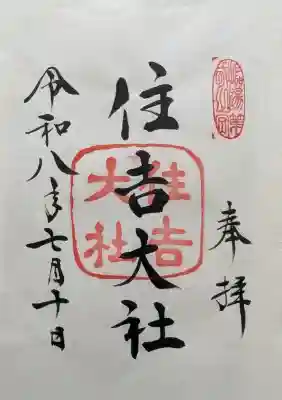 奉拝
住吉大社
住吉
大社
令和八年七月十日